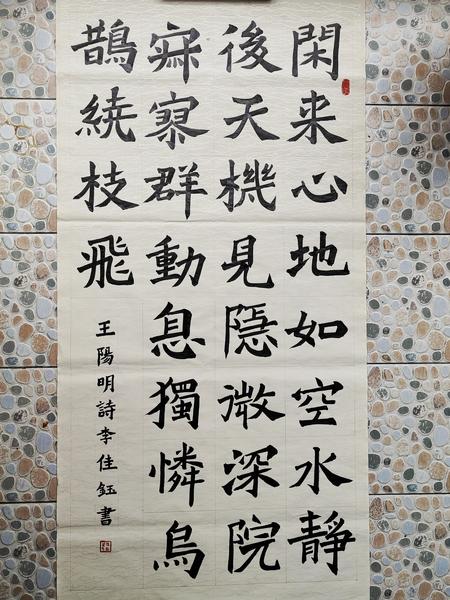 閑来心地如空水靜
後天機見隱微深院
寂寥群動息獨憐烏
鵲繞枝飛
王陽明詩李佳鈺書